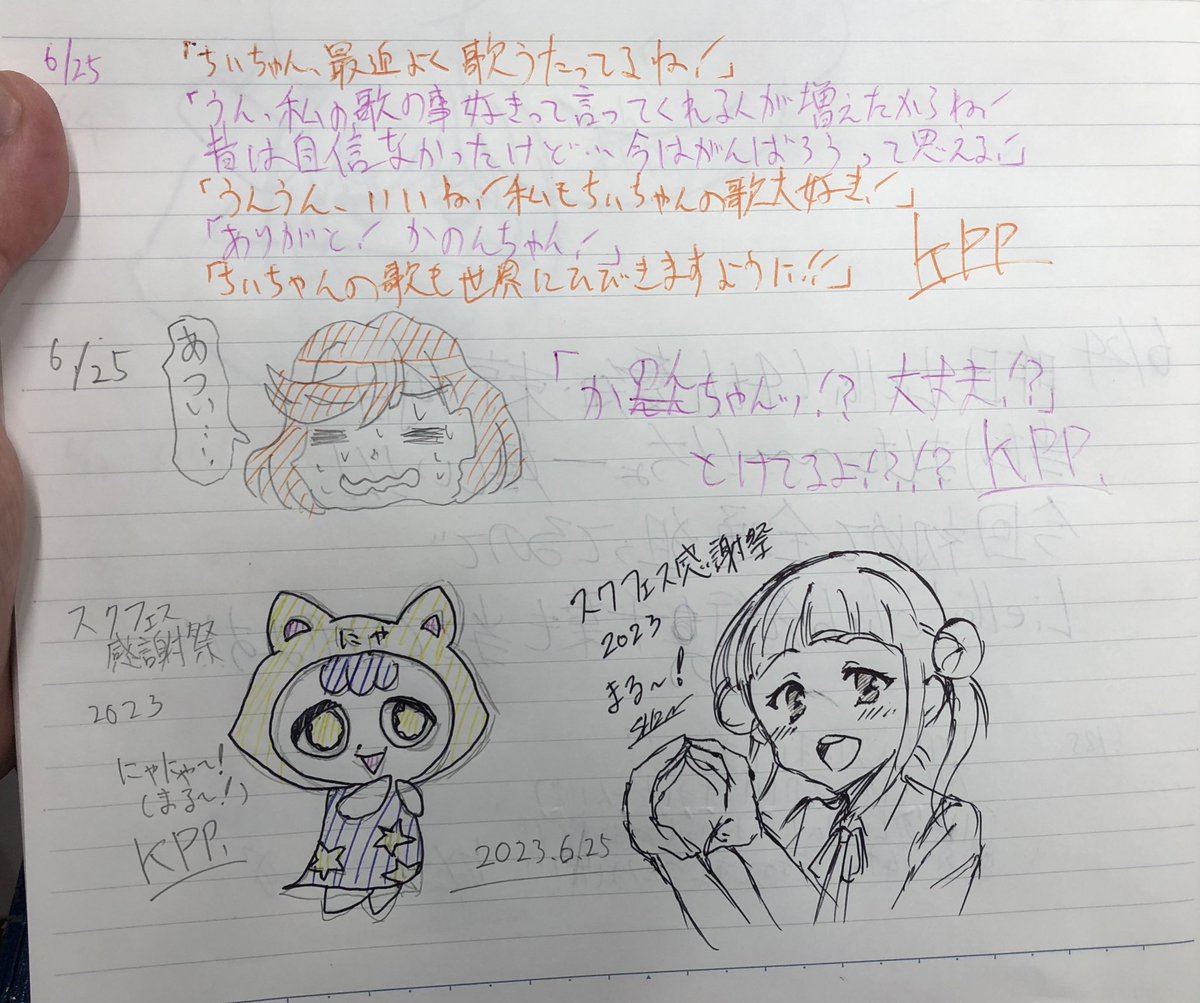 6/25
「ちぃちゃん、最近よく歌うたってるね!」
「うん、私の歌の事好きって言ってくれる人が増えたからね!
昔は自信なかったけど…今はがんばろうって思える!」
「うんうん、いいね!私もちぃちゃんの歌大好き!」
「ありがと!かのんちゃん!」
「ちぃちゃんの歌も世界にひびきますように!!」
KPP
6/25
あつい……
「かのんちゃんッ!?大丈夫!?」
とけてるよ!?!?
KPP.
スクフェス
感謝祭
2023
にゃ
にゃにゃ〜!
(まる〜!)
KPP.
スクフェス感謝祭
2023
まる〜!
2023.6.25